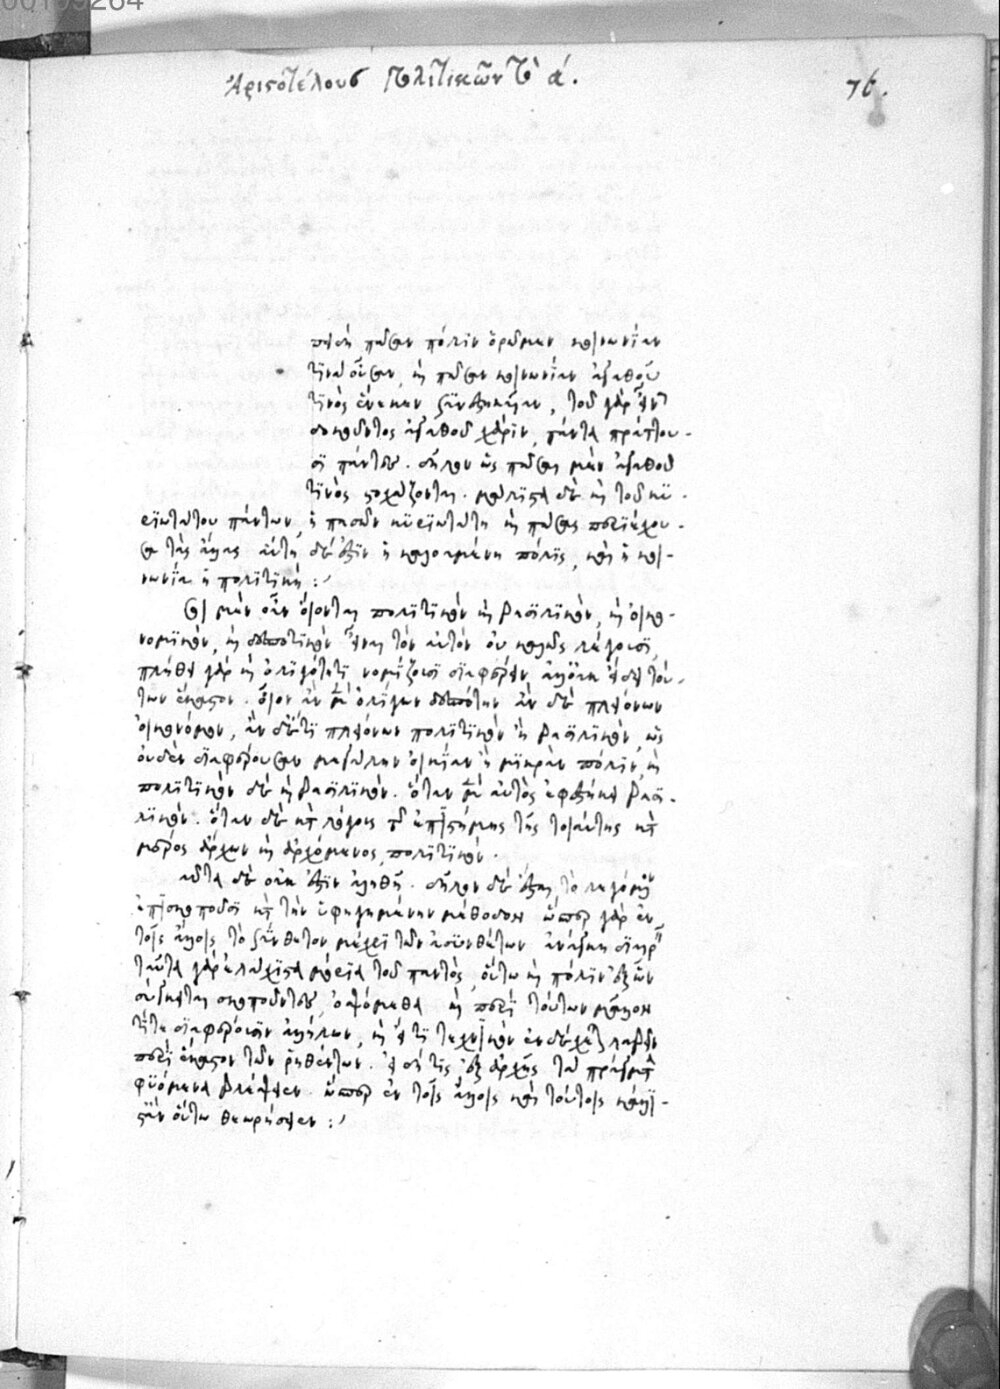 00199264
Ἀριστοτέλους Πολιτικῶν τὸ ά.
76.
πειδὴ πᾶσαν πόλιν ὁρῶμεν κοινωνίαν
τινὰ οὖσαν, καὶ πᾶσαν κοινωνίαν ἀγαθοῦ
τινὸς ἕνεκεν συνεστηκυῖαν, τοῦ γὰρ εἶναι
δοκοῦντος ἀγαθοῦ χάριν, πάντα πράττου-
σι πάντες. δῆλον ὡς πᾶσαι μὲν ἀγαθοῦ
τινὸς στοχάζονται. μάλιστα δὲ καὶ τοῦ κυ-
ριωτάτου πάντων, ἡ πασῶν κυριωτάτη καὶ πάσας περιέχου-
σα τὰς ἄλλας αὕτη δ' ἐστὶν ἡ καλουμένη πόλις, καὶ ἡ κοι-
νωνία ἡ πολιτική :~
Οἱ μὲν οὖν οἴονται πολιτικὸν καὶ βασιλικὸν, καὶ οἰκο-
νομικὸν, καὶ δεσποτικὸν εἶναι τὸν αὐτὸν οὐ καλῶς λέγουσι,
πλήθει γὰρ καὶ ὀλιγότητι νομίζουσι διαφέρειν ἀλλ' οὐκ εἴδει τού-
των ἕκαστον. οἷον ἂν μὲν ὀλίγων δεσπότην ἂν δὲ πλειόνων
οἰκονόμον, ἂν δ' ἔτι πλειόνων πολιτικὸν ἢ βασιλικὸν, ὡς
οὐδὲν διαφέρουσαν μεγάλην οἰκίαν ἢ μικρὰν πόλιν, καὶ
πολιτικὸν δὲ καὶ βασιλικὸν. ὅταν μὲν αὐτὸς ἐφεστήκει βασι-
λικὸν. ὅταν δὲ κατὰ λόγους τῆς ἐπιστήμης τῆς τοιαύτης κατὰ
μέρος ἄρχων καὶ ἀρχόμενος, πολιτικὸν.
αῦτα δὲ οὐκ ἔστιν ἀληθῆ. δῆλον δὲ ἔσται τὸ λεγόμενον
ἐπισκοποῦσι κατὰ τὴν ὑφηγημένην μέθοδον ὥσπερ γὰρ ἐν
τοῖς ἄλλοις τὸ σύνθετον μέχρι τῶν ἀσυνθέτων ἀνάγκη διαιρεῖν
ταῦτα γὰρ ἐλάχιστα μόρια τοῦ παντὸς, οὕτω καὶ πόλιν ἐξ ὧν
σύγκειται σκοποῦντες, ὀψόμεθα καὶ περὶ τούτων μᾶλλον
τί τε διαφέρουσιν ἀλλήλων, καὶ εἴ τι τεχνικὸν ἐνδέχεται λαβεῖν
περὶ ἕκαστον τῶν ῥηθέντων. εἰ δή τις ἐξ ἀρχῆς τὰ πράγματα
φυόμενα βλέψειεν. ὥσπερ ἐν τοῖς ἄλλοις καὶ τούτοις κάλλι-
στ' ἂν οὕτω θεωρήσειεν :~